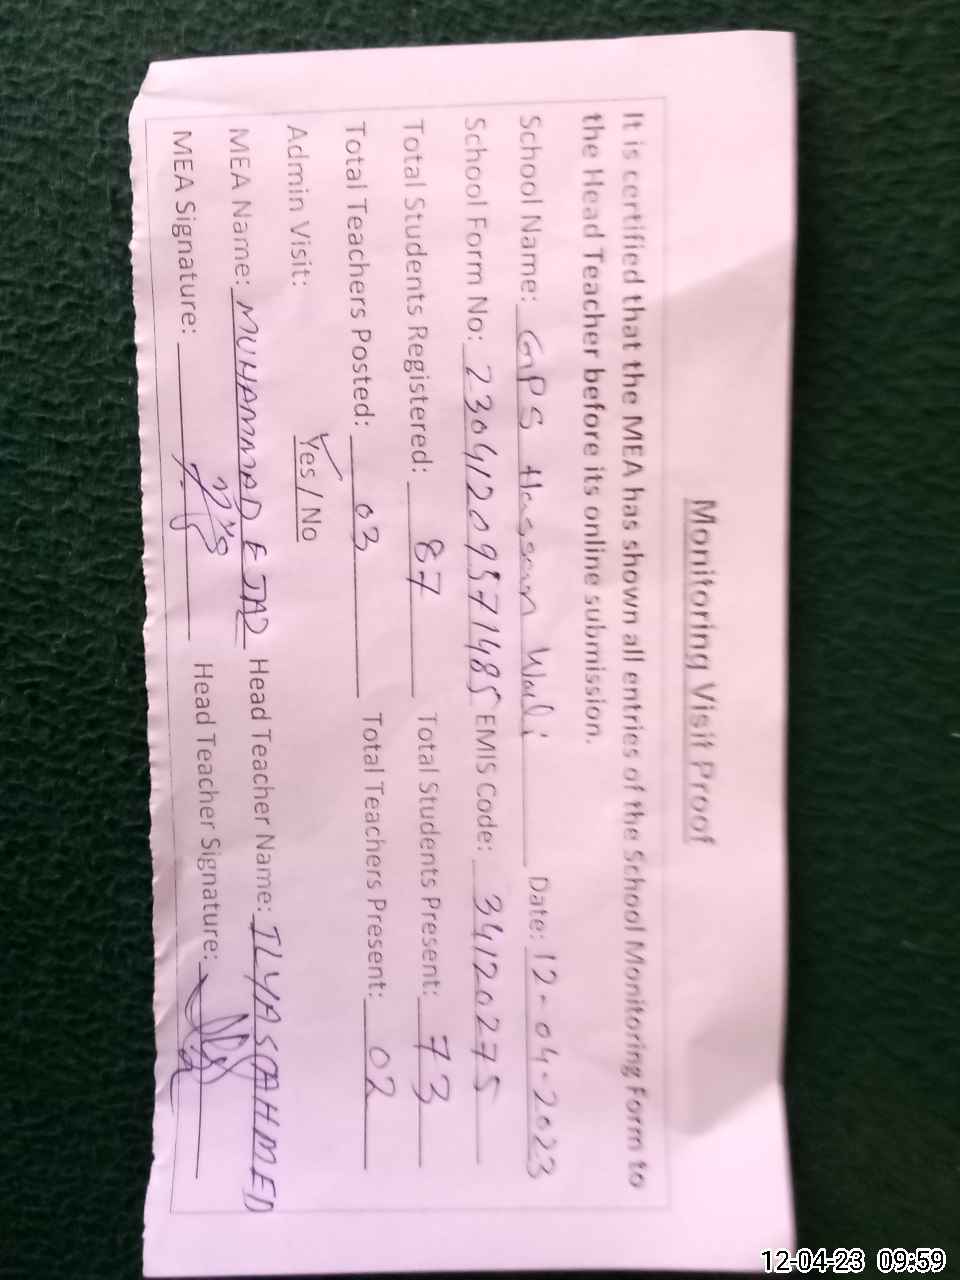 Monitoring Visit Proof
It is certified that the MEA has shown all entries of the School Monitoring Form to
the Head Teacher before its online submission.
School Name: GPS Hassan Wali Date: 12-04-2023
School Form No: 23041209371485 EMIS Code: 34120275
Total Students Registered: 87 Total Students Present: 73
Total Teachers Posted: 03 Total Teachers Present: 02
Admin Visit: Yes / No
MEA Name: MUHAMMAD EJAZ Head Teacher Name: ILYAS AHMED
MEA Signature: Head Teacher Signature:
12-04-23 09:59